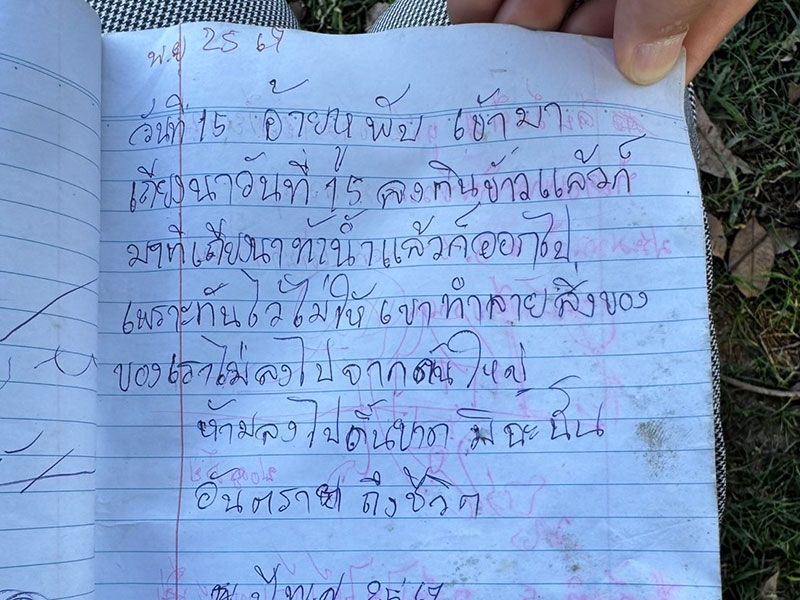 พ.ย 2567
วันที่ 15 อ้ายหูพับ เข้ามา
เถียงนาวันที่ 15 ลงกินข้าวแล้วก็
มาที่เถียงนาท่าน้ำแล้วก็ออกไป
เพราะกันไว้ไม่ให้เขาทำลายสิ่งของ
ของเราไม่ลงไปจาก ใหญ่
ห้ามลงไปเด็ดขาด มิฉะนั้น
อันตราย ถึงชีวิต
2567